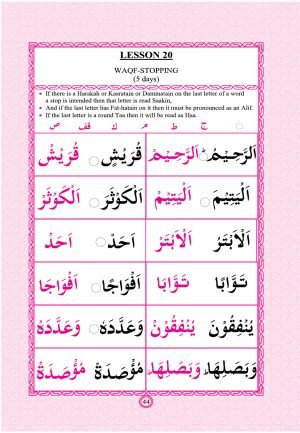 LESSON 20
WAQF-STOPPING
(5 days)
If there is a Harakah or Kasratain or Dammatain on the last letter of a word
a stop is intended then that letter is read Saakin,
And if the last letter has Fat-hatain on it then it must be pronounced as an Alif.
If the last letter is a round Taa then it will be read as Haa.
ج ط م ك قف ص
اَلرَّحِيْمُ اَلرَّحِيْمْ قُرَيْشٍ قُرَيْشْ
اَلْيَتِيْمَ اَلْيَتِيْمْ اَلْكَوْثَرَ اَلْكَوْثَرْ
اَلْاَبْتَرُ اَلْاَبْتَرْ اَحَدٌ اَحَدْ
تَوَّابًا تَوَّابَا اَفْوَاجًا اَفْوَاجَا
يُنْفِقُوْنَ يُنْفِقُوْنْ وَعَدَّدَهٗ وَعَدَّدَهْ
وَبَصَلِهَا وَبَصَلِهَا مُؤْصَدَةٌ مُؤْصَدَةْ
44